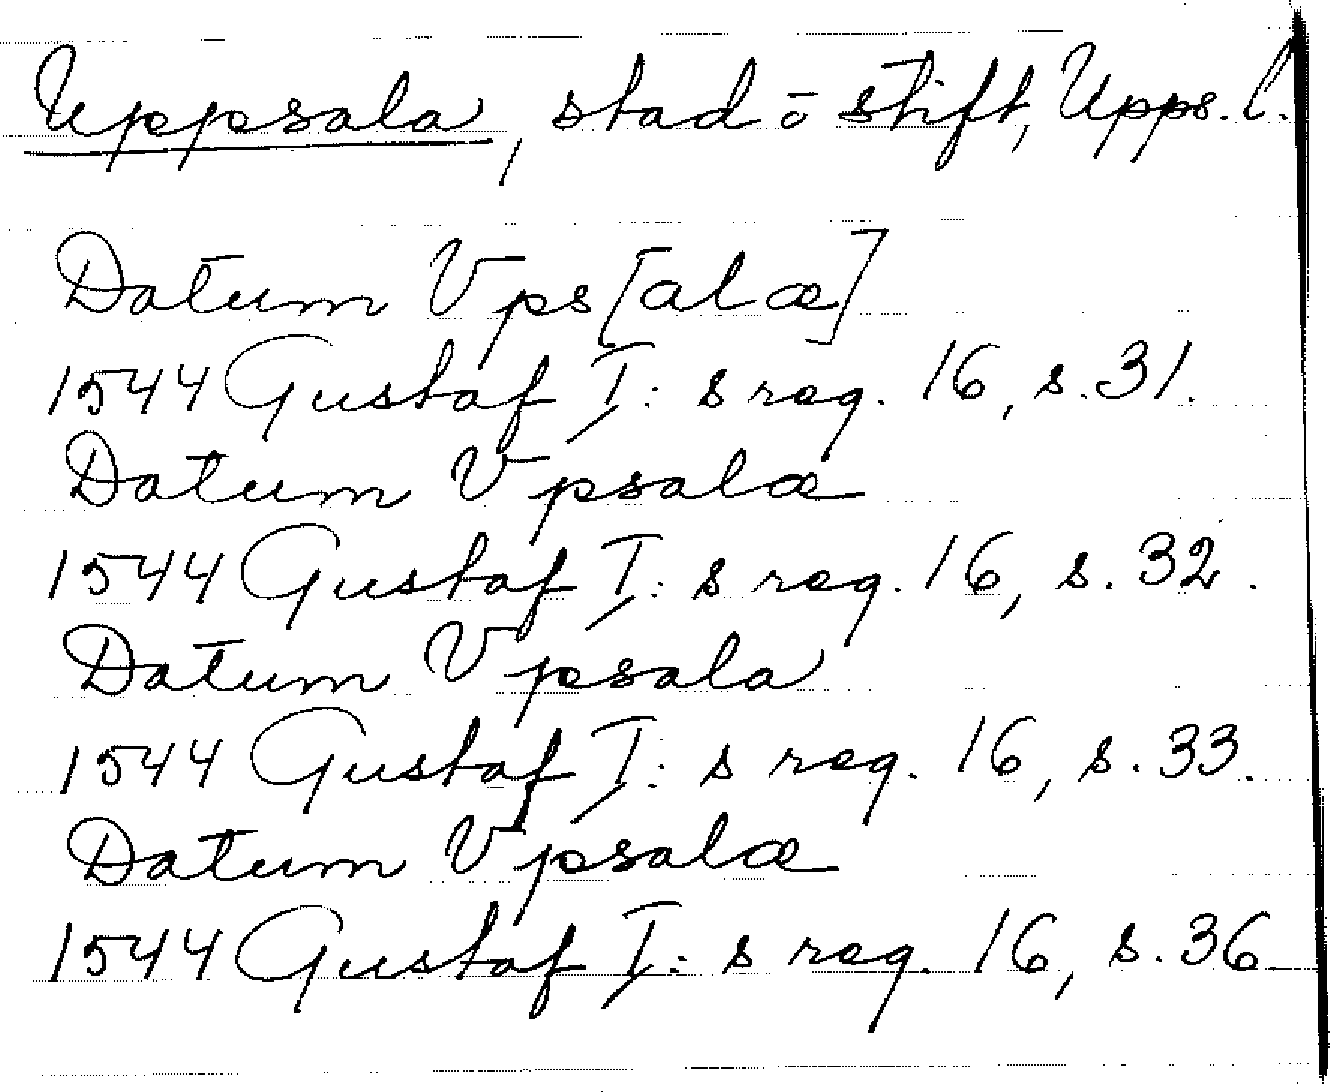 Uppsala, stad o stift, Upps. l.
Datum Vps[alæ]
1544 Gustaf I: s reg. 16, s. 31.
Datum Vpsalæ
1544 Gustaf I: s reg. 16, s. 32.
Datum Vpsala
1544 Gustaf I: s reg. 16, s. 33.
Datum Vpsalæ
1544 Gustaf I: s reg. 16, s. 36